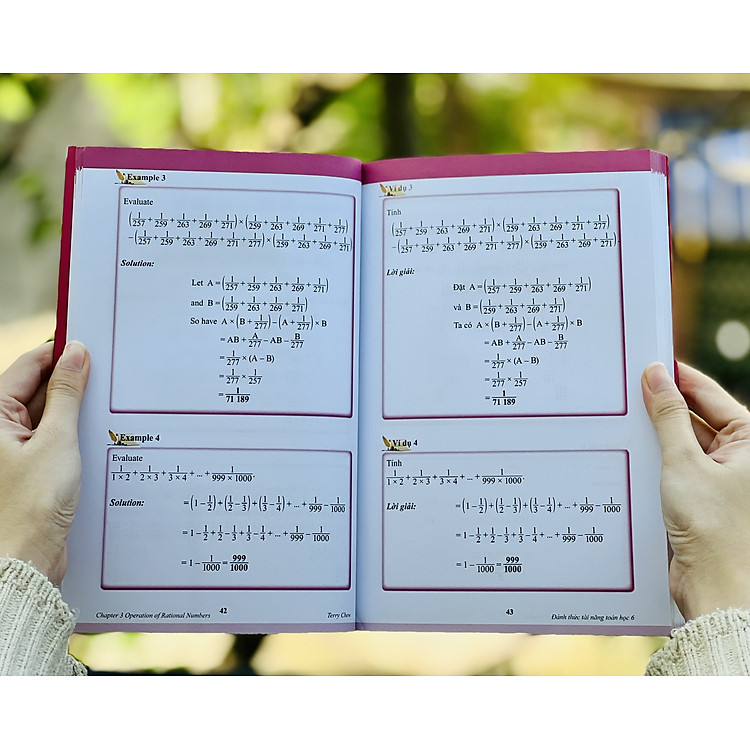 Example 3
Evaluate
(1/257 + 1/259 + 1/263 + 1/269 + 1/271) × (1/259 + 1/263 + 1/269 + 1/271 + 1/277)
− (1/257 + 1/259 + 1/263 + 1/269 + 1/271 + 1/277) × (1/259 + 1/263 + 1/269 + 1/271)
Solution:
Let A = (1/257 + 1/259 + 1/263 + 1/269 + 1/271)
and B = (1/259 + 1/263 + 1/269 + 1/271)
So have A × (B + 1/277) − (A + 1/277) × B
= AB + A/277 − AB − B/277
= 1/277 × (A − B)
= 1/277 × 1/257
= 1/71 189
Example 4
Evaluate
1/1 × 2 + 1/2 × 3 + 1/3 × 4 + ... + 1/999 × 1000.
Solution: = (1 − 1/2) + (1/2 − 1/3) + (1/3 − 1/4) + ... + 1/999 − 1/1000
= 1 − 1/2 + 1/2 − 1/3 + 1/3 − 1/4 + ... + 1/999 − 1/1000
= 1 − 1/1000 = 999/1000
Chapter 3 Operation of Rational Numbers 42 Terry Chew
Ví dụ 3
Tính
(1/257 + 1/259 + 1/263 + 1/269 + 1/271) × (1/259 + 1/263 + 1/269 + 1/271 + 1/277)
− (1/257 + 1/259 + 1/263 + 1/269 + 1/271 + 1/277) × (1/259 + 1/263 + 1/269 + 1/271).
Lời giải:
Đặt A = (1/257 + 1/259 + 1/263 + 1/269 + 1/271)
và B = (1/259 + 1/263 + 1/269 + 1/271)
Ta có A × (B + 1/277) − (A + 1/277) × B
= AB + A/277 − AB − B/277
= 1/277 × (A − B)
= 1/277 × 1/257
= 1/71 189
Ví dụ 4
Tính
1/1 × 2 + 1/2 × 3 + 1/3 × 4 + ... + 1/999 × 1000.
Lời giải: = (1 − 1/2) + (1/2 − 1/3) + (1/3 − 1/4) + ... + 1/999 − 1/1000
= 1 − 1/2 + 1/2 − 1/3 + 1/3 − 1/4 + ... + 1/999 − 1/1000
= 1 − 1/1000 = 999/1000
43 Đánh thức tài năng toán học 6